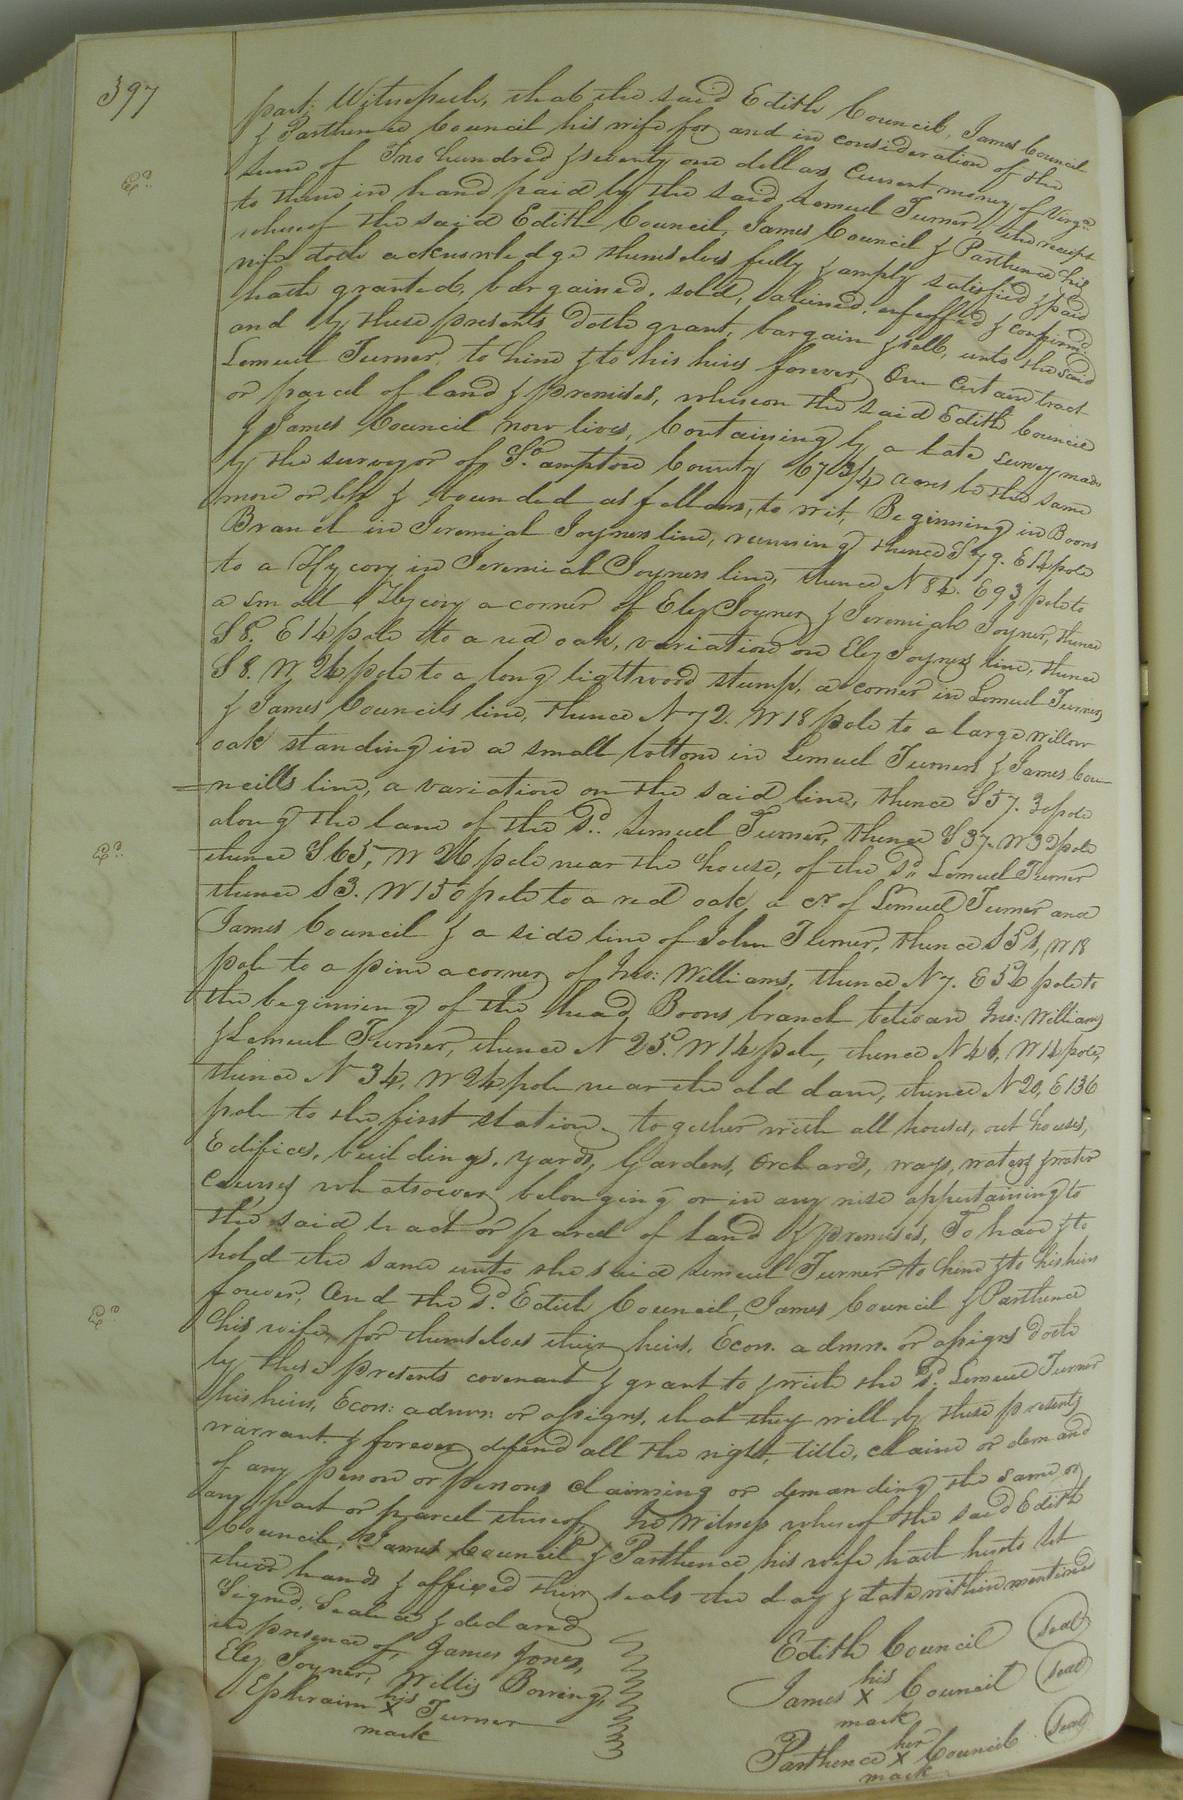 397
part; Witnesseth, that the said Edith Council, James Council
& Parthenee Council his wife for and in consideration of the
sum of Two hundred & seventy one dollars Current money of Virga
to them in hand paid by the said Lemuel Turner, the receipt
whereof the said Edith Council, James Council & Parthenee his
wife doth acknowledge themselves fully & amply satisfied & paid
hath granted, bargained, sold, aliened, enfeoffed & confirmed
and by these presents doth grant, bargain & sell, unto the said
Lemuel Turner, to him & to his heirs forever, One Certain tract
or parcel of land & premises, whereon the said Edith Council
& James Council now lives, Containing by a late survey made
by the surveyor of So.ampton County 67 3/4 acres be the same
more or less & bounded as follows, to wit, Beginning in Boons
Branch in Jeremiah Joyners line, running thence S 79. E 14 pole
to a Hycory in Jeremiah Joyners line, thence N 84. E 93 pole to
a small Hycory a corner of Eley Joyner & Jeremiah Joyner, thence
S 8. E 14 pole to a red oak, variation on Eley Joyners line, thence
S 8. W 24 pole to a long lightwood stump, a corner in Lemuel Turners
& James Councils line, thence N 72. W 18 pole to a large willow
oak standing in a small bottom in Lemuel Turners & James Cou=
=ncills line, a variation on the said line, thence S 57. pole
along the lane of the sd. Lemuel Turner, thence S 37. W 32 pole
thence S 65, W 26 pole near the house, of the sd. Lemuel Turner
thence S 3. W 150 pole to a red oak, a cr of Lemuel Turner and
James Council & a side line of John Turner, thence S 51, W 18
pole to a pine a corner of Jno: Williams, thence N 7. E 56 pole to
the beginning of the head Boons branch between Jno: Williams
& Lemuel Turner, thence N 25. W 14 pole, thence N 46, W 14 pole,
thence N 34, W 24 pole near the old dam, thence N 20, E 136
pole to the first station. together with all houses, out houses,
Edifices, buildings, yards, Gardens, Orchards, ways, waters & water
Courses whatsoever belonging or in any wise appertaining to
the said tract or parcel of land & premises, To have & to
hold the same unto the said Lemuel Turner to him & to his heirs
forever, And the sd. Edith Council, James Council & Parthenee
his wife, for themselves their heirs, Exon. admn. or assigns doth
by these presents covenant & grant to & with the sd. Lemuel Turner
his heirs, Exon: admn: or assigns, that they will by these presents
warrant & forever defend all the right, title, claim or demand
of any person or persons claiming or demanding the same or
any part or parcel thereof, In Witness whereof the said Edith
Council, James Council & Parthenee his wife hath hereto set
their hands & affixed their seals the day & date within mentioned
Signed, Sealed & declared
in presence of, James Jones,
Eley Joyner, Willis Bowing,
Ephraim his X mark Turner
Edith Council (seal)
James his X mark Council (seal)
Parthenee her X mark Council (seal)